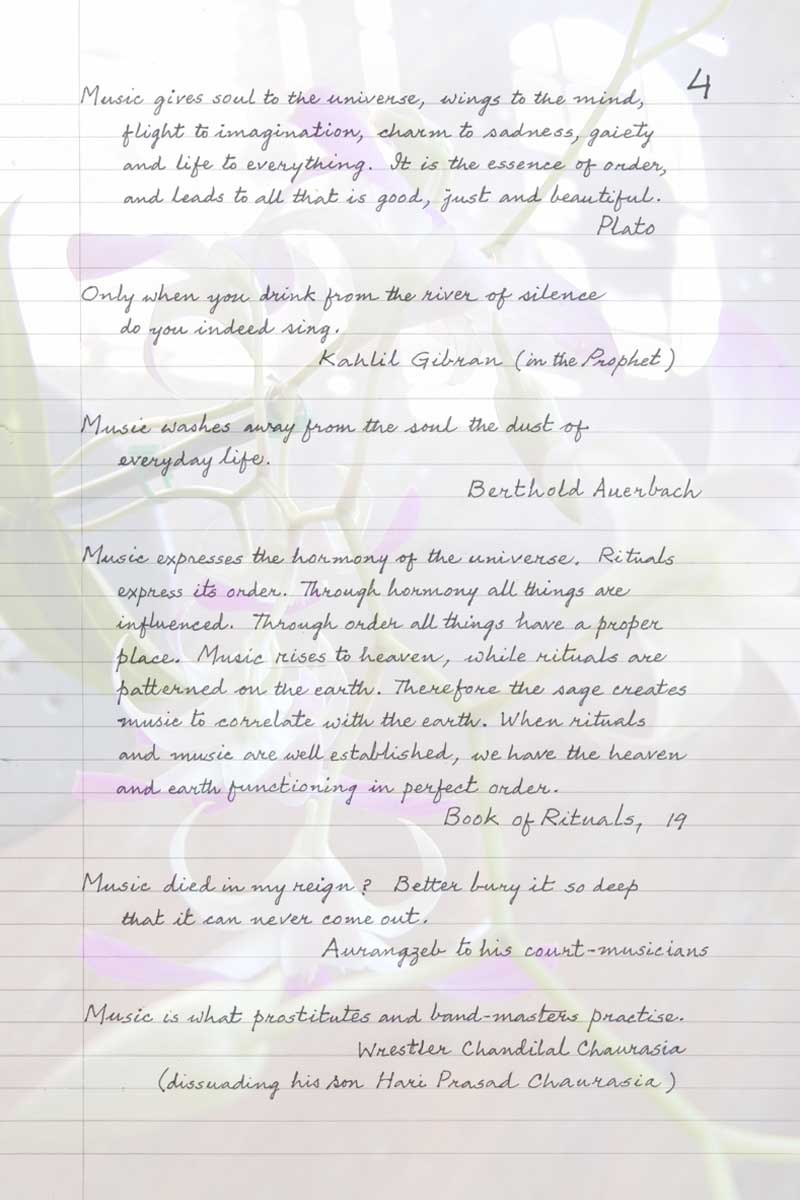 4
Music gives soul to the universe, wings to the mind,
flight to imagination, charm to sadness, gaiety
and life to everything. It is the essence of order,
and leads to all that is good, just and beautiful.
Plato
Only when you drink from the river of silence
do you indeed sing.
Kahlil Gibran (in the Prophet)
Music washes away from the soul the dust of
everyday life.
Berthold Auerbach
Music expresses the hormony of the universe. Rituals
express its order. Through hormony all things are
influenced. Through order all things have a proper
place. Music rises to heaven, while rituals are
patterned on the earth. Therefore the sage creates
music to correlate with the earth. When rituals
and music are well established, we have the heaven
and earth functioning in perfect order.
Book of Rituals, 19
Music died in my reign? Better bury it so deep
that it can never come out.
Aurangzeb to his court-musicians
Music is what prostitutes and band-masters practise.
Wrestler Chandilal Chaurasia
(dissuading his son Hari Prasad Chaurasia)